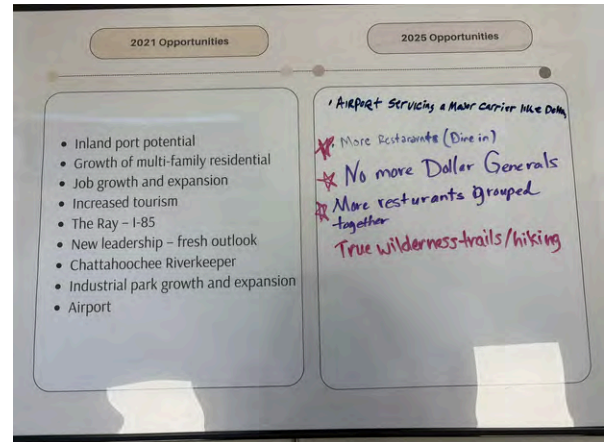 2021 Opportunities
2025 Opportunities
• Inland port potential
• Growth of multi-family residential
• Job growth and expansion
• Increased tourism
• The Ray – I-85
• New leadership – fresh outlook
• Chattahoochee Riverkeeper
• Industrial park growth and expansion
• Airport
• Airport Servicing a Major Carrier like Delta
• More Restaraunts (Dine in)
No more Dollar Generals
More resturants grouped
together
True wilderness-trails/hiking